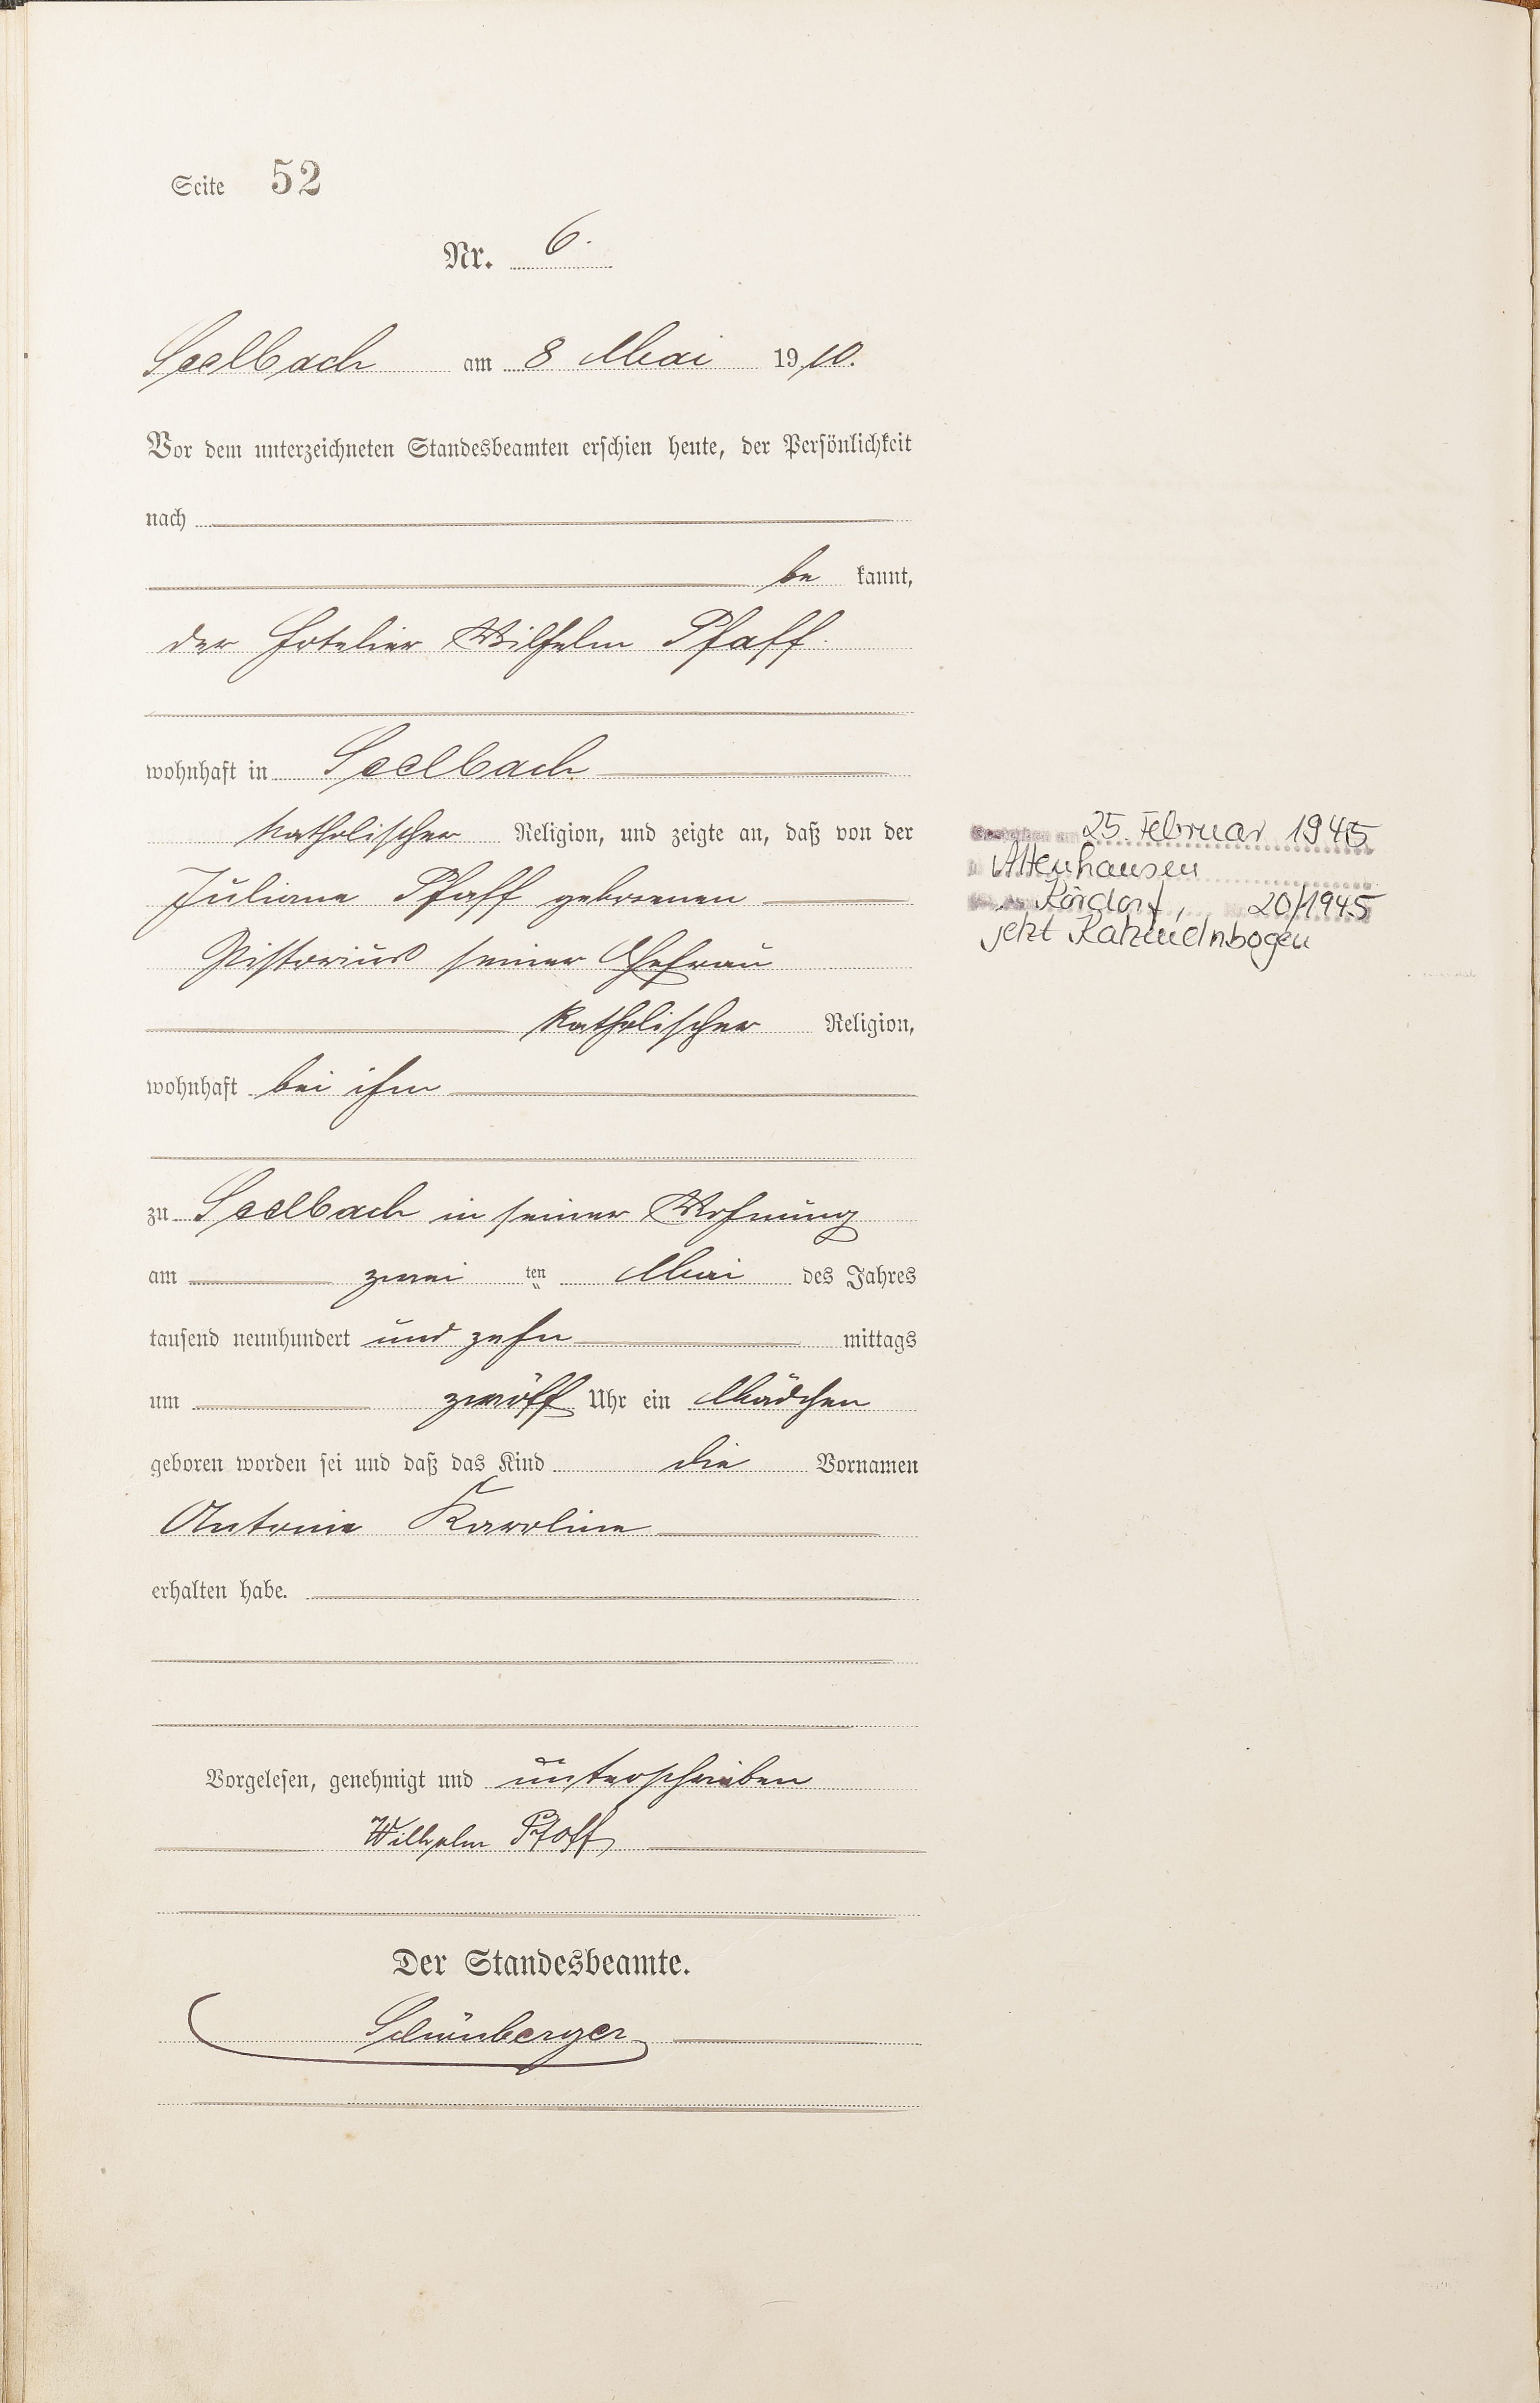 Seite 52
Nr. 6.
Seelbach am 8 Mai 1910.
Vor dem unterzeichneten Standesbeamten erschien heute, der Persönlichkeit
nach
be kannt,
der Hotelier Wilhelm Pfaff.
wohnhaft in Seelbach
katholischer Religion, und zeigte an, daß von der
Juliane Pfaff geborenen
Pistorius seiner Ehefrau
katholischer Religion,
wohnhaft bei ihm
zu Seelbach in seiner Wohnung
am zwei ten Mai des Jahres
tausend neunhundert und zehn mittags
um zwölf Uhr ein Mädchen
geboren worden sei und daß das Kind die Vornamen
Antonie Karoline
erhalten habe.
Vorgelesen, genehmigt und unterschrieben
Wilhelm Pfaff
Der Standesbeamte.
Schönberger
25. Februar 1945
Attenhausen
Kördorf, 20/1945
jetzt Katzenelnbogen